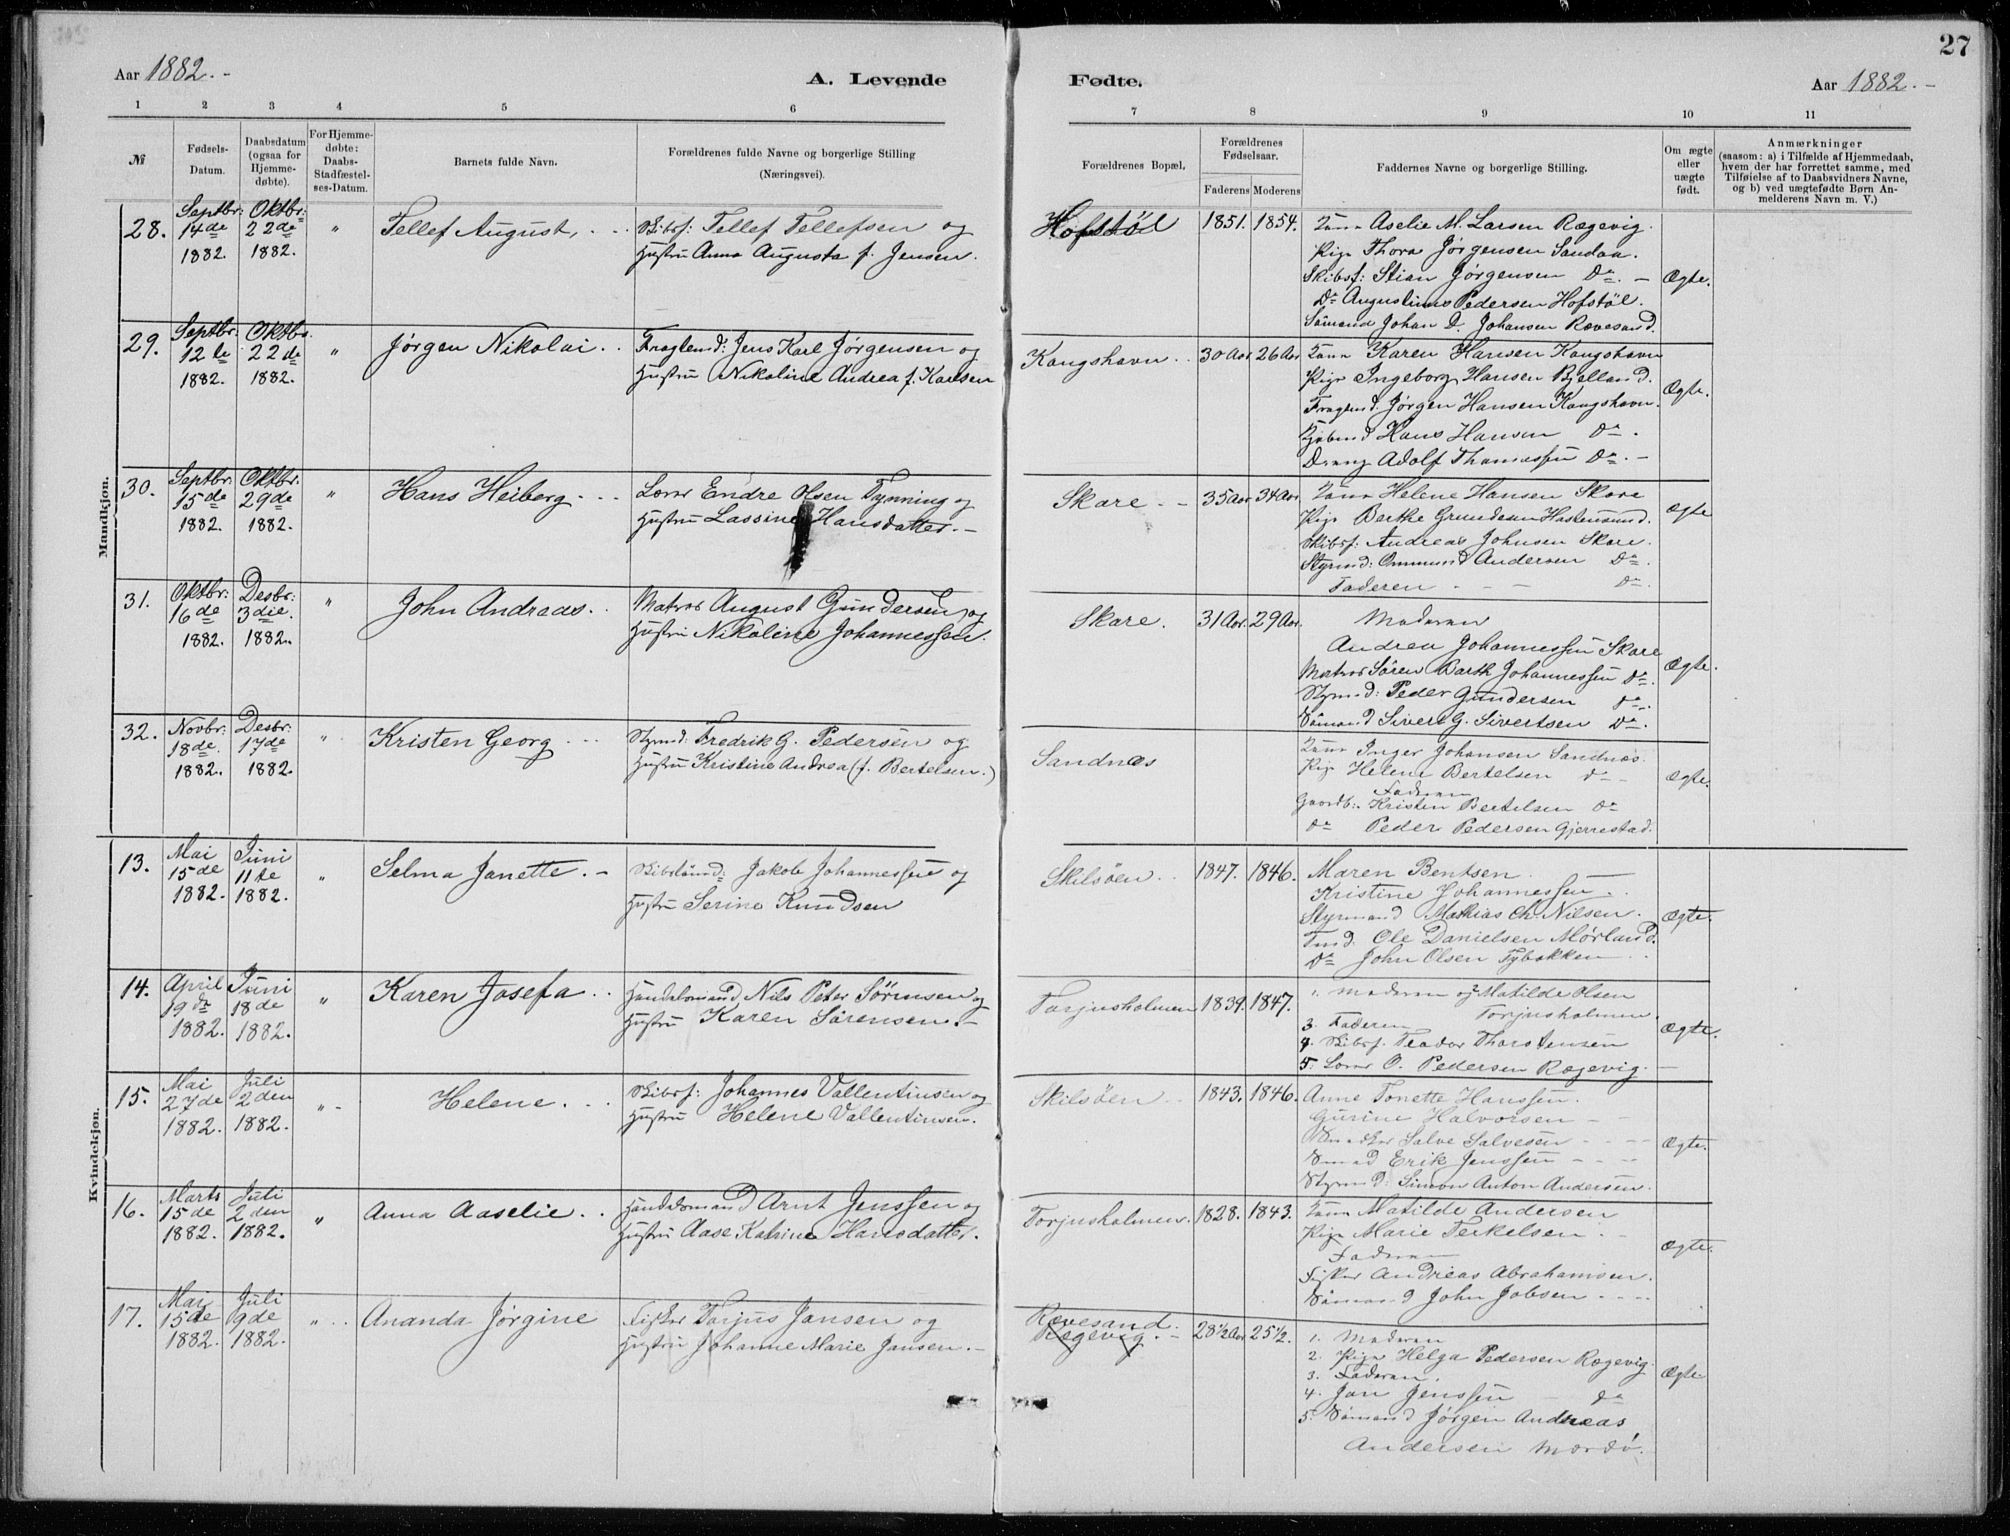 27
Aar 1882.-
A. Levende
Fødte.
Aar 1882.-
1 2 3 4 5 6 7 8 9 10 11
№
Fødsels-
Datum.
Daabsdatum
(ogsaa for
Hjemme-
døbte).
For Hjemme-
døbte:
Daabs-
Stadfæstel-
ses-Datum.
Barnets fulde Navn.
Forældrenes fulde Navne og borgerlige Stilling
(Næringsvei).
Forældrenes Bopæl.
Forældrenes
Fødselsaar.
Faderens
Moderens
Faddernes Navne og borgerlige Stilling.
Om ægte
eller
uægte
født.
Anmærkninger
(saasom: a) i Tilfælde af Hjemmedaab,
hvem der har forrettet samme, med
Tilføielse af to Daabsvidners Navne,
og b) ved uægtefødte Børn An-
melderens Navn m. V.)
Mandkjøn.
28.
Septbr:
14de
1882.
Oktbr:
22de
1882.
"
Tellef August,
Skibsf: Tellef Tellefsen og
Hustru Anna Augusta f. Jensen.
Hofstöl
1851. 1854.
Kone Aselie M. Larsen Rægevig.
Pige Thora Jørgensen Sandaa.
Skibsf: Stian Jørgensen Do.
Do Augustinus Pedersen Hofstöl.
Sömand Johan D. Johansen Rævesand.
Ægte.
29.
Septbr.
12te
1882.
Oktbr.
22de
1882.
"
Jørgen Nikolai
Fragtmd: Jens Karl Jørgensen og
Hustru Nikoline Andrea f. Karlsen
Kongshavn
30 Aar 26 Aar
Kone Karen Hansen Kongshavn
Pige Ingeborg Hansen Bjelland.
Fragtmd. Jörgen Hansen Kongshavn.
Kjøbmd Hans Hansen Do.
Dreng Adolf Thomassen Do.
Ægte.
30.
Septbr:
15de
1882.
Oktbr.
29de
1882.
"
Hans Heiberg
Lærer Endre Olsen Tynning og
Hustru Lassine Hansdatter.
Skare
35 Aar 34 Aar
Kone Helene Hansen Skare
Pige Berthe Gundersen Hastensund.
Skibsf: Andreas Johnsen Skare.
Styrmd: Ommund Andersen Do.
Faderen Do.
Ægte
31.
Oktbr:
16de
1882.
Desbr:
3die.
1882.
"
John Andreas.
Matros August Gundersen og
Hustru Nikoline Johannessen.
Skare.
31 Aar. 29 Aar.
Moderen
Andrea Johannessen Skare
Matros Sören Barth Johannessen Do.
Styrmd: Peder Gundersen Do.
Sömand Sivert G. Sivertsen Do.
Ægte.
32.
Novbr:
18de.
1882.
Desbr:
17de
1882.
"
Kristen Georg
Styrmd: Fredrik G. Pedersen og
Hustru Kristine Andrea (f. Bertelsen.)
Sandnæs
Kone Inger Johansen Sandnæs.
Pige Helene Bertelsen Do
Faderen
Gaardb: Kristen Bertelsen Do
Do Peder Pedersen Gjerrestad.
Ægte.
Kvindekjøn.
13.
Mai
15de
1882.
Juni
11te
1882.
"
Selma Janette.
Skibstömd: Jakob Johannessen og
Hustru Serine Knudsen
Skilsöen
1847. 1846.
Maren Bentsen
Kristine Johannessen
Styrmand Mathias Ch. Nilsen.
Tmd: Ole Danielsen Mörland.
Do John Olsen Tybakken
Ægte.
14.
April
19de
1882.
Juni
18de
1882.
"
Karen Josefa
Handelsmand Nils Peter Sörensen og
Hustru Karen Sörensen.
Torjusholmen
1839. 1847.
1. Moderen og 2 Matilde Olsen
Torjusholmen.
3. Faderen
4. Skibsf. Teodor Thorstensen
5. Lærer O. Pedersen Rægevig.
Ægte.
15.
Mai
27de
1882.
Juli
2den
1882.
"
Helene.
Skibsf: Johannes Vallentinsen og
Hustru Helene Vallentinsen.
Skilsöen
1843. 1846.
Anne Tonette Hanssen.
Gurine Halvorsen
Snedker Salve Salvesen
Smed Erik Jenssen
Styrmd: Simon Anton Andersen.
Ægte.
16.
Marts
15de
1882.
Juli
2den
1882.
"
Anna Aaselie.
Handelsmand Arnt Jenssen og
Hustru Aase Katrine Hansdatter.
Torjusholmen.
1828. 1843.
Kone Matilde Andersen
Pige Marie Terkelsen.
Faderen
Fisker Andreas Abrahamsen.
Sömand John Jobsen
Ægte.
17.
Mai
15de
1882.
Juli
9de
1882.
"
Ananda Jørgine
Fisker Torjus Jansen og
Hustru Johanne Marie Jansen.
Rævesand.
Rægevig.
28½ Aar 25½.
1. Moderen
2. Pige Helga Pedersen Rægevig.
3. Faderen.
4. Jan Jenssen Do
5. Sömand Jörgen Andreas
Andersen Merdö.
Ægte